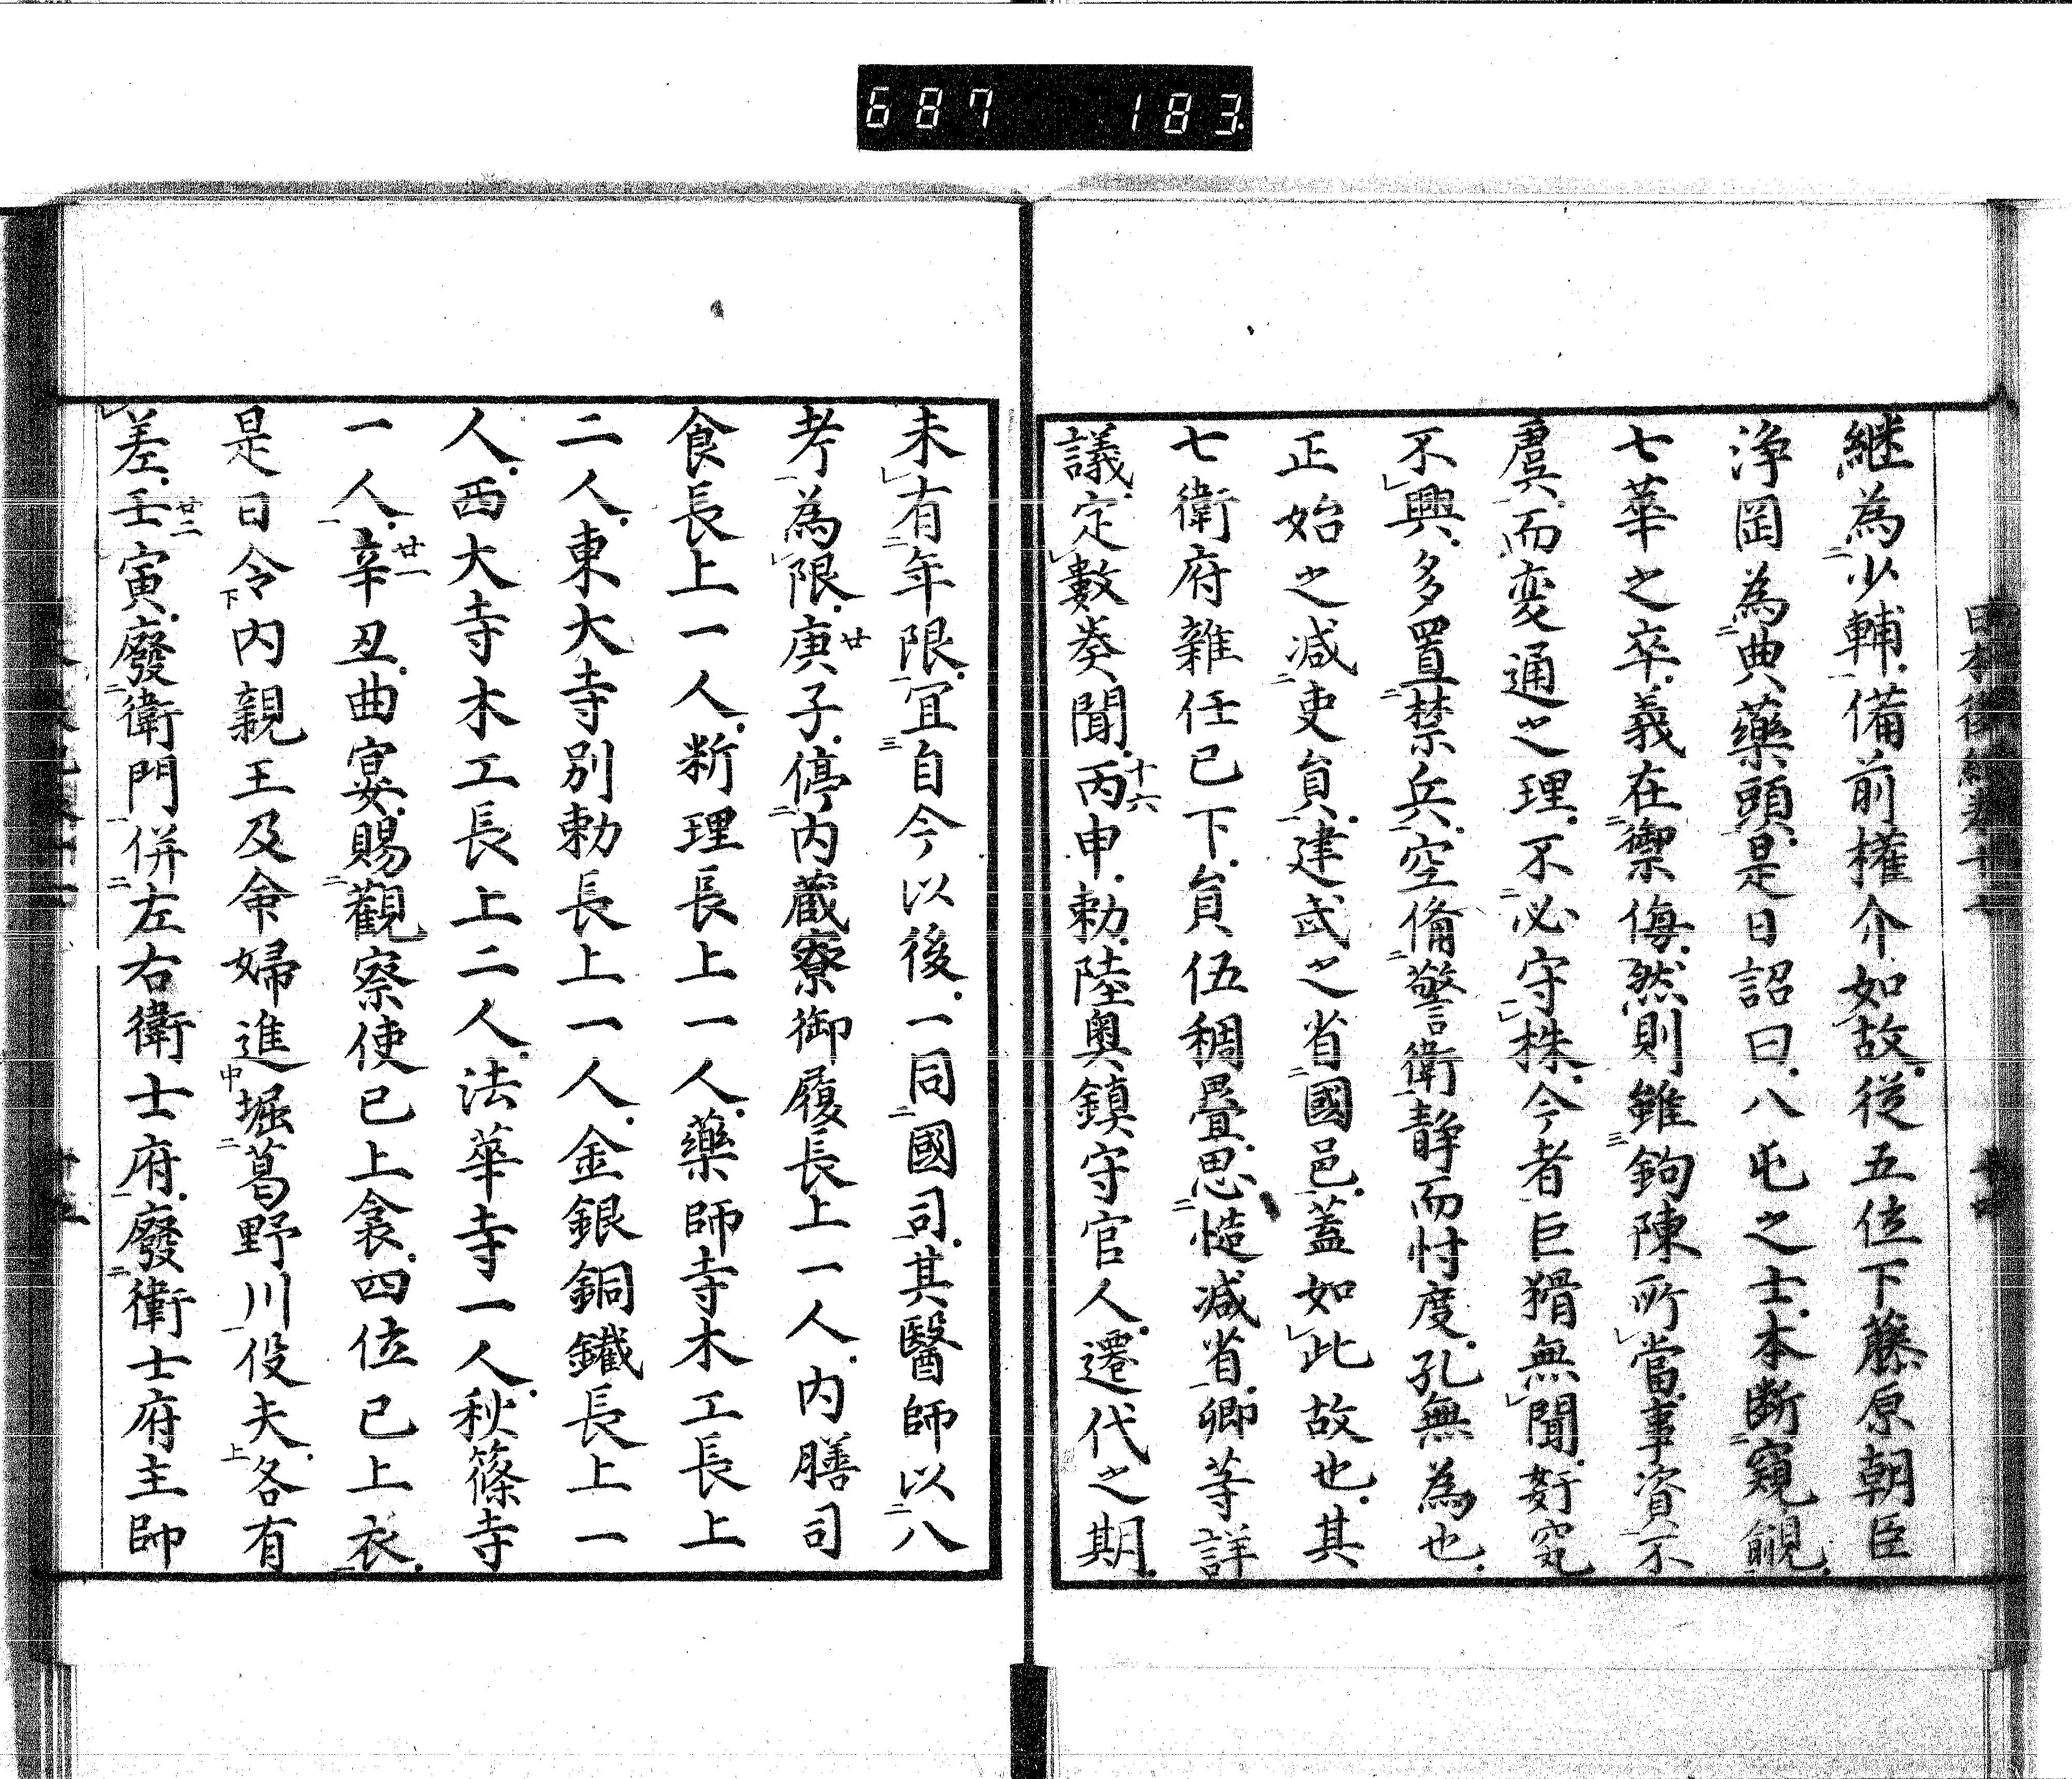 687 183
継為少輔備前權介如故従五位下藤原朝臣
浄岡為典藥頭是日詔曰八屯之士本断窺覦
七萃之卒義在禦侮然則雖鉤陳所當事資不
虞而変通之理不必守株今者巨猾無聞姧宄
不興多置禁兵空偹警衛静而忖度孔無為也
正始之减吏負建武之省國邑蓋如此故也其
七衛府雜任已下負伍稠疊思慥减省卿等詳
議定數奏聞丙十六申勅陸奥鎮守官人遷代之期
未有年限宜自今以後一同國司其醫師以八
考為限庚廿子停内蔵寮御履長上一人内膳司
食長上一人新理長上一人藥師寺木工長上
二人東大寺別勅長上一人金銀銅鐵長上一
人西大寺木工長上二人法華寺一人秋篠寺
一人辛廿一丑曲宴賜觀察使已上衾四位已上衣
是日令内親王及命婦進堀葛野川役夫各有
差壬廿二寅廢衛門併左右衛士府廢衛士府主帥